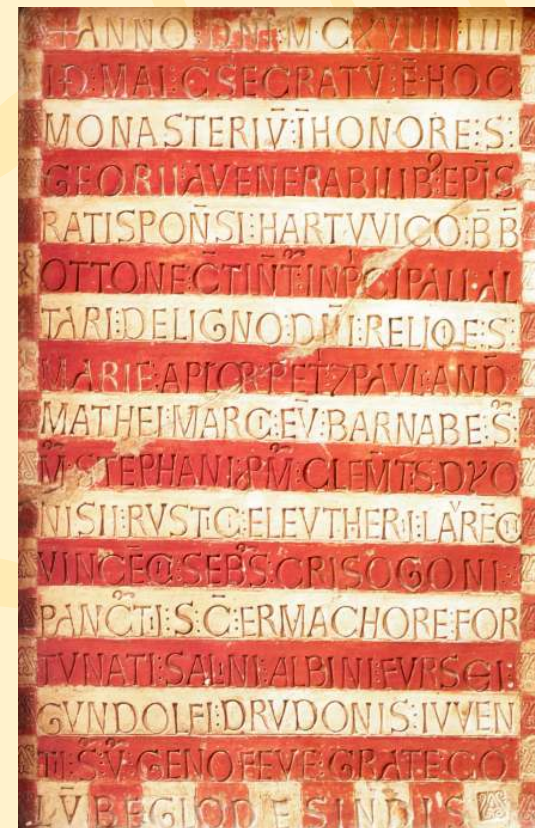 +ANNO : DN̄I : M·CXVIIII·IIII
ID̄·MAI : C̄SECRATV̄ : Ē HOC
MONASTERIV̄ : ĪHONORE : S :
GEORII : A VENERABILIB᾿ : EPĪS
RATISPOÑSI : HARTVVICO : B̄B̄
OTTONE : C̄TIN̄T : IN P̄CIPALI : AL
TARI : DE LIGNO : DN̄I : RELIQ̄E S
MARIE : APLOR PET᾿ ⁊ PAVL : AND̄
MATHEI MARCI : EV̄ : BARNABE : S̄
M̄ : STEPHANI : P̄M : CLEM̄TIS : DYO
NISII : RVSTICI : ELEVTHERI : LAV̄RĒCII
VINCĒCII : SEB᾿S : CRISOGONI :
PANC̄TI : S : C̄ : ERMACHORE : FOR
TVNATI : SALINI : ALBINI : FVRSEI :
GVNDOLFI : DRVDONIS : IVVEN
TII : S̄ : V̄ : GENOFEVE : GRATE : CO
LV̄BE : GLOD